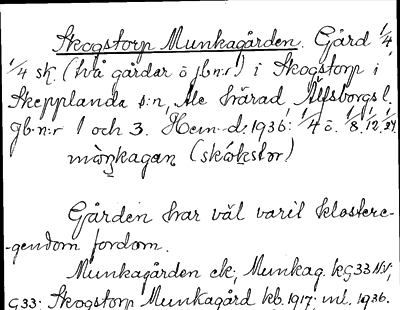 Skogstorp Munkagården. Gård 1/4,
1/4 sk. (två gårdar å jb.n:r 1) i Skogstorp i
Skepplanda s:n, Ale härad Älfsborgs l.
Jb.n:r 1 och 3. Hem. d. 1936: 1/4 o. 1/8. 1/12. 1/24.
Gården har väl varit kloster-
-gendom fordom.
Munkagården ek; Munkag. kG33
G33: Skogstorp Munkagård kb. 1917; ml. 1936.